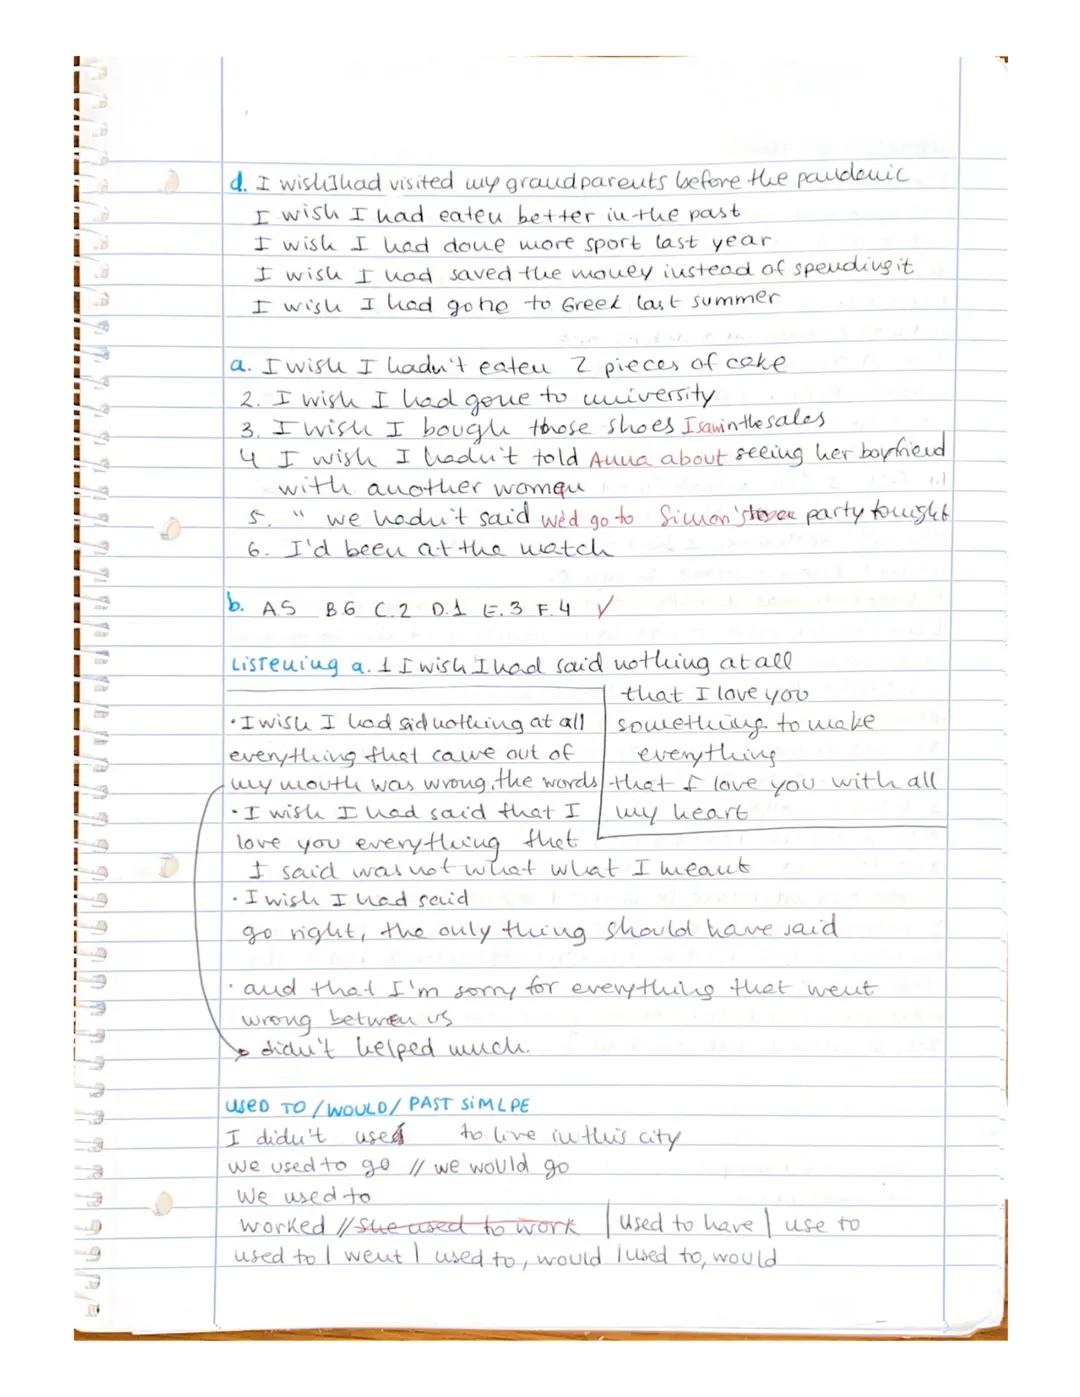 d. I wish I had visited my grandparents before the pandemic
I wish I had eaten better in the past
I wish I had done more sport last year
I wish I had saved the money instead of spending it
I wish I had gone to Greek last summer
a. I wish I hadn't eaten 2 pieces of cake
2. I wish I had gone to university
3. I wish I bough those shoes I saw in the sales
4 I wish I hadn't told Anna about seeing her boyfriend
with another woman
5. " we hadn't said we'd go to Simon's party tonight
6. I'd been at the match
b. A5 B6 C.2 D.1 E.3 F.4 ✓
Listening a. 1 I wish I had said nothing at all
that I love you
· I wish I had sid nothing at all
something to make
everything that came out of
everything
my mouth was wrong, the words
that I love you with all
· I wish I had said that I
my heart
love you everything that
I said was not what what I meant
· I wish I had said
go right, the only thing should have said
· and that I'm sorry for everything that went
wrong betwen us
didn't helped much.
USED TO / WOULD / PAST SIMLPE
I didn't used to live in this city
we used to go // we would go
We used to
worked // She used to work | Used to have | use to
used to | went | used to, would | used to, would